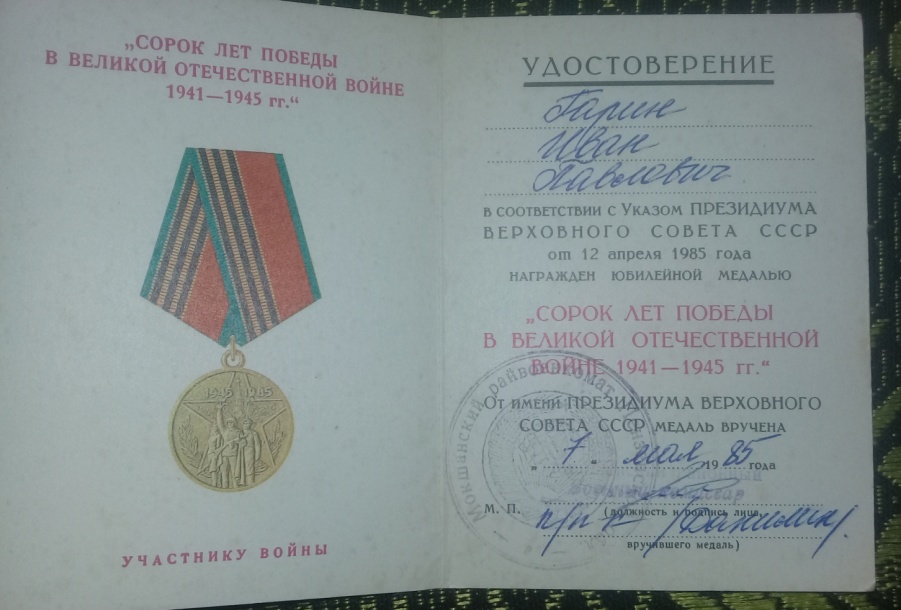 „СОРОК ЛЕТ ПОБЕДЫ
В ВЕЛИКОЙ ОТЕЧЕСТВЕННОЙ ВОЙНЕ
1941—1945 гг.“
1945 1985
УЧАСТНИКУ ВОЙНЫ
УДОСТОВЕРЕНИЕ
Гарин
Иван
Павлович
В СООТВЕТСТВИИ С УКАЗОМ ПРЕЗИДИУМА
ВЕРХОВНОГО СОВЕТА СССР
от 12 апреля 1985 года
НАГРАЖДЕН ЮБИЛЕЙНОЙ МЕДАЛЬЮ
„СОРОК ЛЕТ ПОБЕДЫ
В ВЕЛИКОЙ ОТЕЧЕСТВЕННОЙ
ВОЙНЕ 1941—1945 гг.“
Мокшанский райвоенкомат
ОТ ИМЕНИ ПРЕЗИДИУМА ВЕРХОВНОГО
СОВЕТА СССР МЕДАЛЬ ВРУЧЕНА
„ 7 “ мая 1985 года
М. П.
(должность и подпись лица,
п/п-к
вручившего медаль)